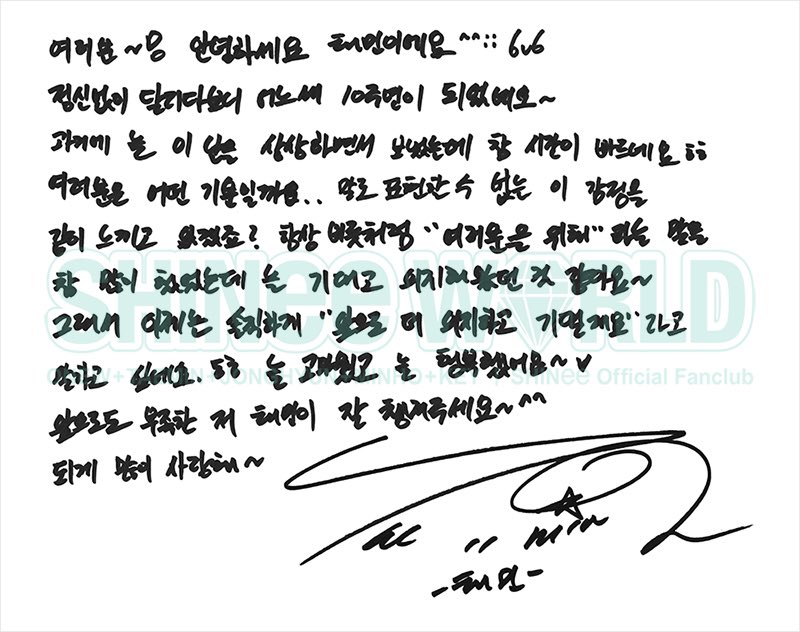 여러분~o 안녕하세요 태민이에요^^:: 6v6
정신없이 달리다보니 어느새 10주년이 되었네요~
과거에 늘 이 날을 상상하면서 보냈는데 참 시간이 빠르네요 ㅎㅎ
여러분은 어떤 기분일까요.. 말로 표현할 수 없는 이 감정을
같이 느끼고 있겠죠? 항상 버릇처럼 "여러분을 위해" 하는 말을
참 많이 했었는데 늘 기대고 의지해왔던 것 같아요~
그래서 이제는 솔직하게 "앞으로 더 의지하고 기댈게요"라고
말하고 싶네요. ㅎㅎ 늘 고마웠고 늘 행복했어요~♥
앞으로도 부족한 저 태민이 잘 챙겨주세요~^^
되게 많이 사랑해~
SHINee WORLD
ONEW+TAEMIN+JONGHYUN+MINHO+KEY | SHINee Official Fanclub
-태민-